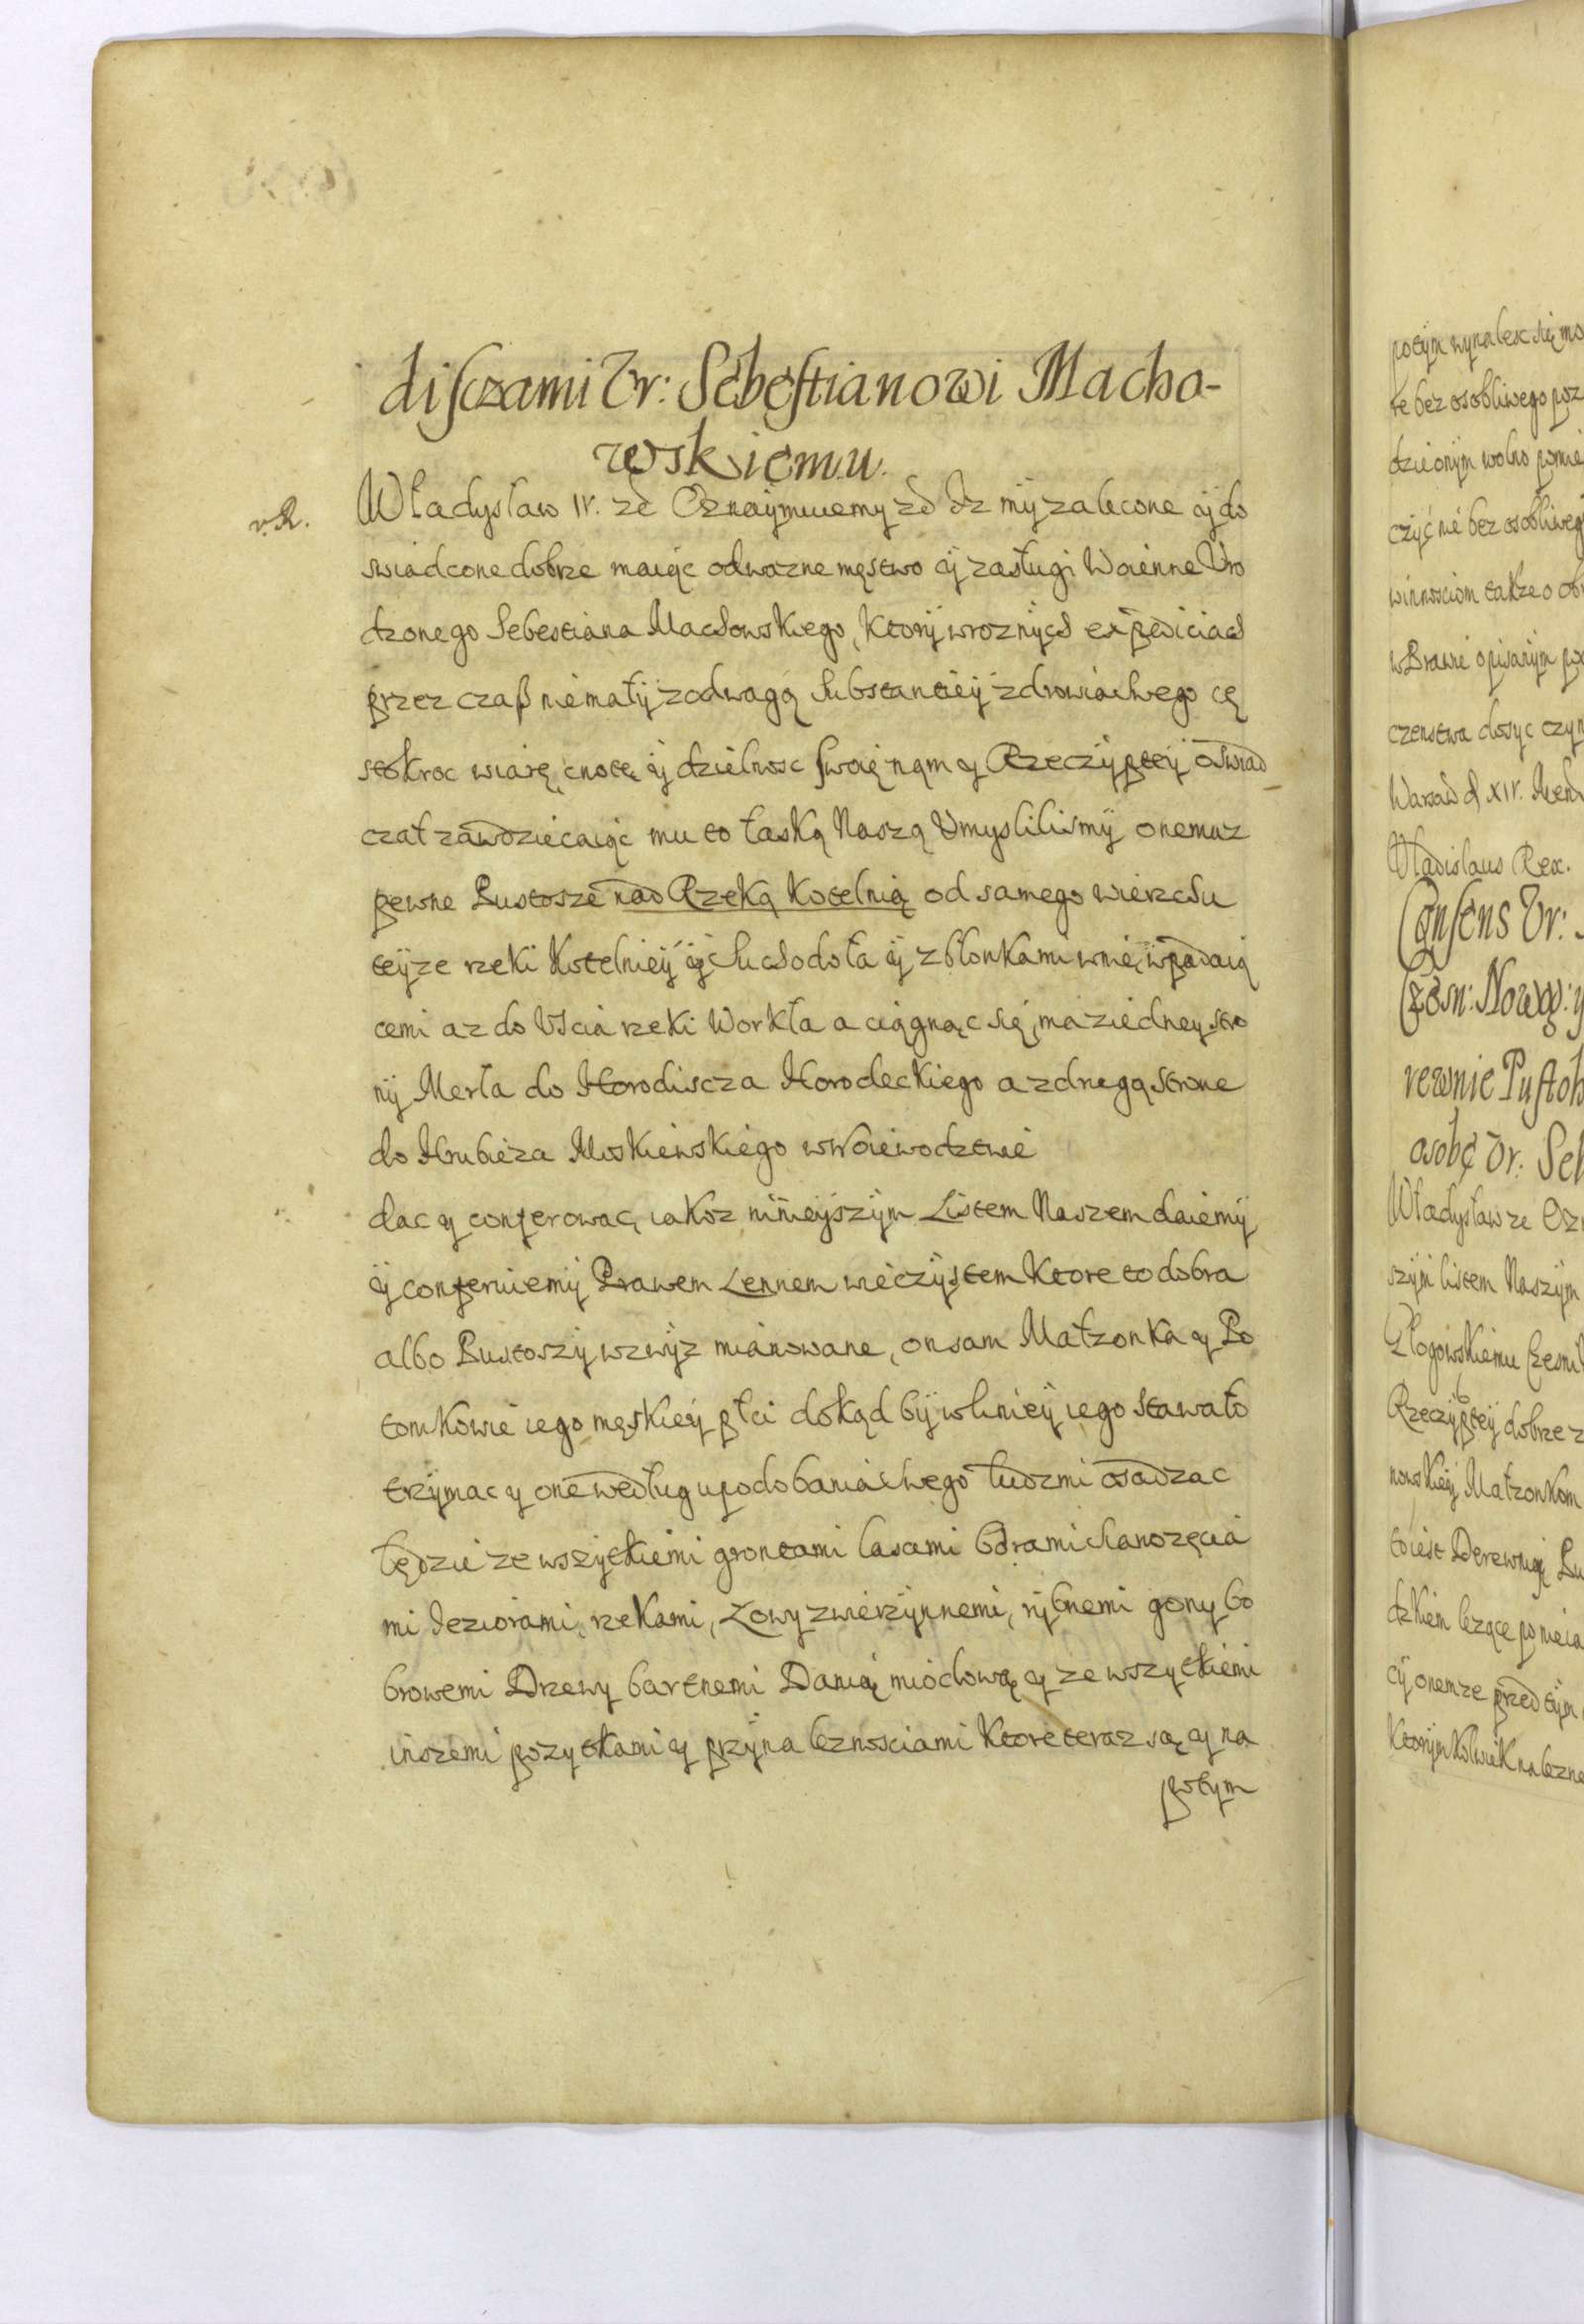 disczami Vr: Sebestianowi Macho-
wskiemu.
v. R.
Władysław IV. ze Oznaymuiemy zd Iz my zalecone ÿ do
swiadczone dobrze maiąc odwazne męstwo ÿ zasługi Woienne Vro
dzonego Sebestiana Machowskiego, Ktory w roznych expediciach
przez czaß niemałÿ z odwagą Substantiey zdrowia swego cę
stokroc wiarę, cnotę ÿ dzielnosc swoię nąm y Rzeczÿptey oswiad
czał zawdziecaiąc mu to łaską Naszą Vmyslilismÿ onemuz
pewne Pustosze nad Rzeką Kotelnią od samego wierzchu
teÿze rzeki Kotelnieÿ ÿ Suchodoła ÿ zbłonkami w nię wpadaią
cemi az do Vscia rzeki Workła a ciągnąc się, ma z iedney stro
nÿ Merla do Horodiscza Horodeckiego a z drugą strone
do Hrubieza Moskiewskiego w Woiewodztwie
dac y conferowac, iakoz ninieÿszÿm Listem Naszem daiemÿ
ÿ conferuiemÿ Prawem Lennem wieczÿstem Ktore to dobra
albo Pustoszÿ wzwÿz mianowane, on sam Małzonka y Po
tomkowie iego męskieÿ płci dokąd bÿ w linieÿ iego stawało
trzÿmac y one według upodobania swego ludzmi osadzac
będzie ze wszÿtkiemi grontami lasami borami sianozęcia
mi Ieziorami, rzekami, Łowy zwierzÿnnemi, rÿbnemi gony bo
browemi Drzewy bartnemi Danią miodową y ze wszytkiemi
inszemi pozytkami y przÿnaleznosciami Ktore teraz są y na
potym
potym wynalesc się mo
te bez osobliwego poz
dzionym wolno
czÿc nie bez osobliweg
winnosciom takze o
w Prawie opisanÿm
czenstwa dosyc czyn
Warsaw d XIV.
Vladislaus Rex.
Consens Vr:
Czesn: Nowog: y
rewnie Pustosz
osobę Vr: Seb
Władysław ze Ozn
szÿm listem Naszÿm
Głogowskiemu Czesnik
Rzeczÿptey dobrze z
nowskieÿ Małzonkom
to iest Derewnią Pu
dzkiem lezące
ÿ onemze przed tÿm
Ktorÿmkolwiek nalezne